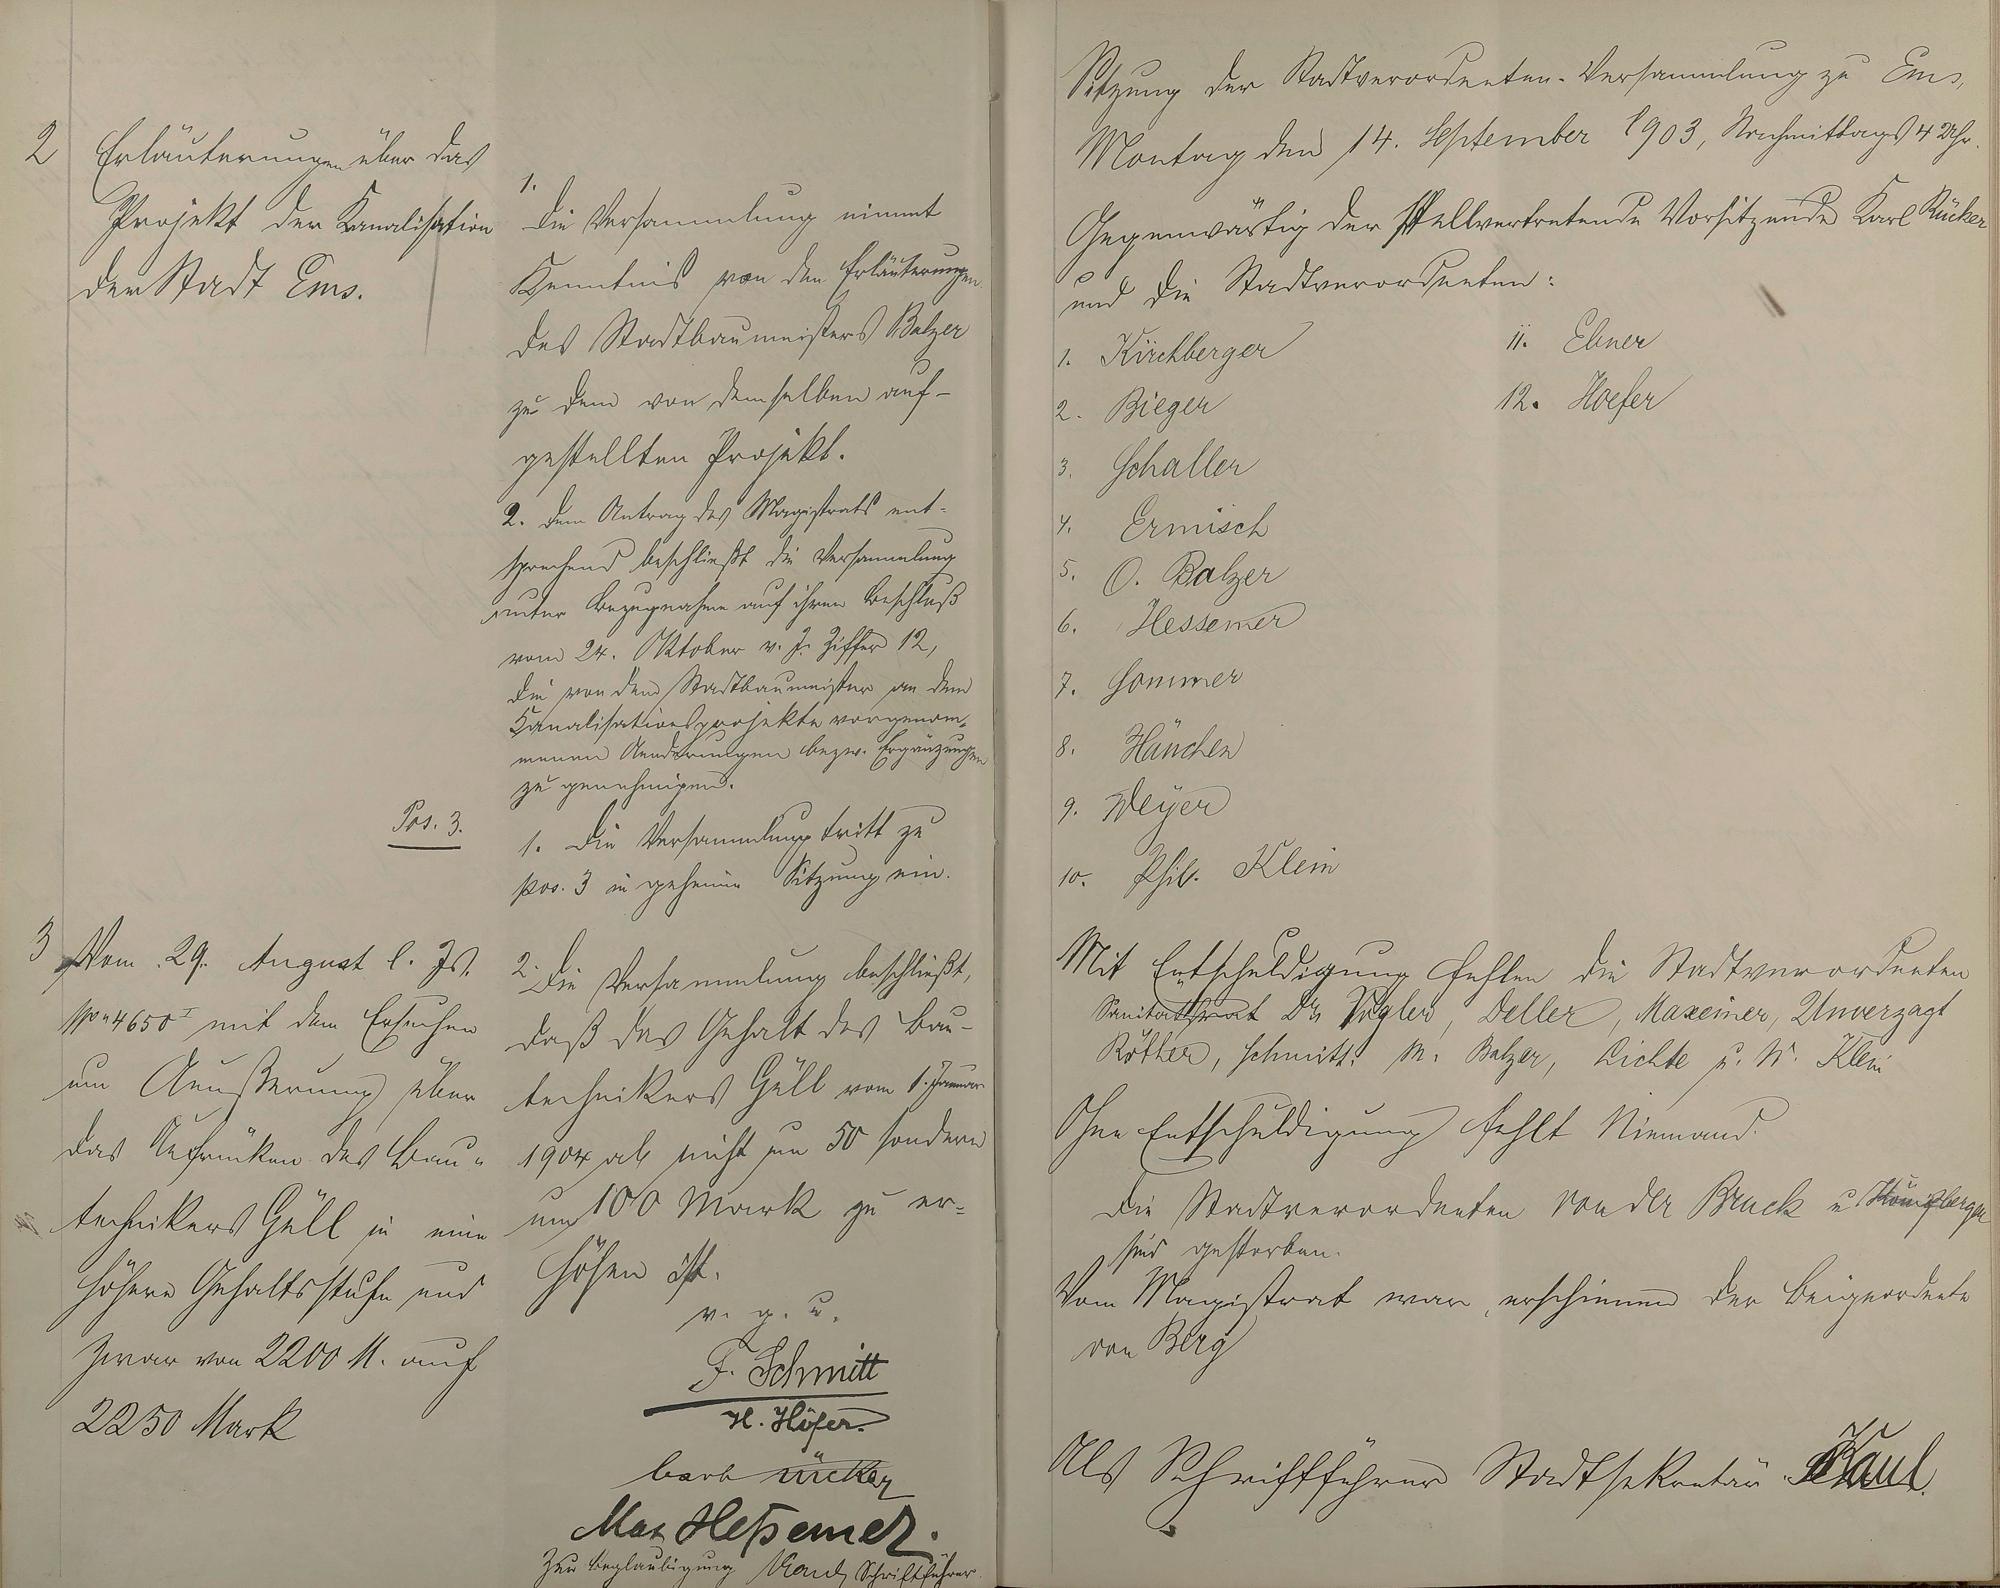 2 Erläuterungen über das
Projekt der Kanalisation
der Stadt Ems.
1.
Die Versammlung nimmt
Kenntnis von den Erläuterungen
des Stadtbaumeisters Balzer
zu dem von demselben auf-
gestellten Projekt.
2. Dem Antrag des Magistrats ent-
sprechend beschließt die Versammlung
unter Bezugnahme auf ihren Beschluß
vom 24. Oktober v. J. Ziffer 12,
die von dem Stadtbaumeister an dem
Kanalisationsprojekte vorgenom-
menen Aenderungen bezw. Ergänzungen
zu genehmigen.
Pos. 3.
1. Die Versammlung tritt zu
pos. 3 in geheime Sitzung ein.
3 Vom 29. August l. Js.
No 4650 I mit dem Ersuchen
um Aeußerung über
das Aufrücken des Bau-
technikers Güll in eine
höhere Gehaltsstufe und
zwar von 2200 M. auf
2250 Mark
2. Die Versammlung beschließt,
daß das Gehalt des Bau-
technikers Güll vom 1. Januar
1904 ab nicht um 50 sondern
um 100 Mark zu er-
höhen ist.
v. g. u.
F. Schmitt
H. Höfer.
Max Heßemer.
Zur Beglaubigung Kaul, Schriftführer.
Sitzung der Stadtverordneten-Versammlung zu Ems,
Montag den 14. September 1903, Nachmittags 4 Uhr.
Gegenwärtig der stellvertretende Vorsitzende Karl Rücker
und die Stadtverordneten:
1. Kirchberger
2. Bieger
3. Schaller
4. Ermisch
5. O. Balzer
6. Hessemer
7. Sommer
8. Hänchen
9. Weyer
10. Phil. Klein
11. Ebner
12. Hoefer
Mit Entschuldigung fehlen die Stadtverordneten
Sanitätsrat Dr. Vogler, Deller, Maxeiner, Unverzagt
Röther, Schmitt, M. Balzer, Lichte u. W. Klein
Ohne Entschuldigung fehlt Niemand.
Die Stadtverordneten von der Bruck u Königsberger
sind gestorben.
Vom Magistrat war erschienen der Beigeordnete
von Berg
Als Schriftführer Stadtsekretär Kaul.